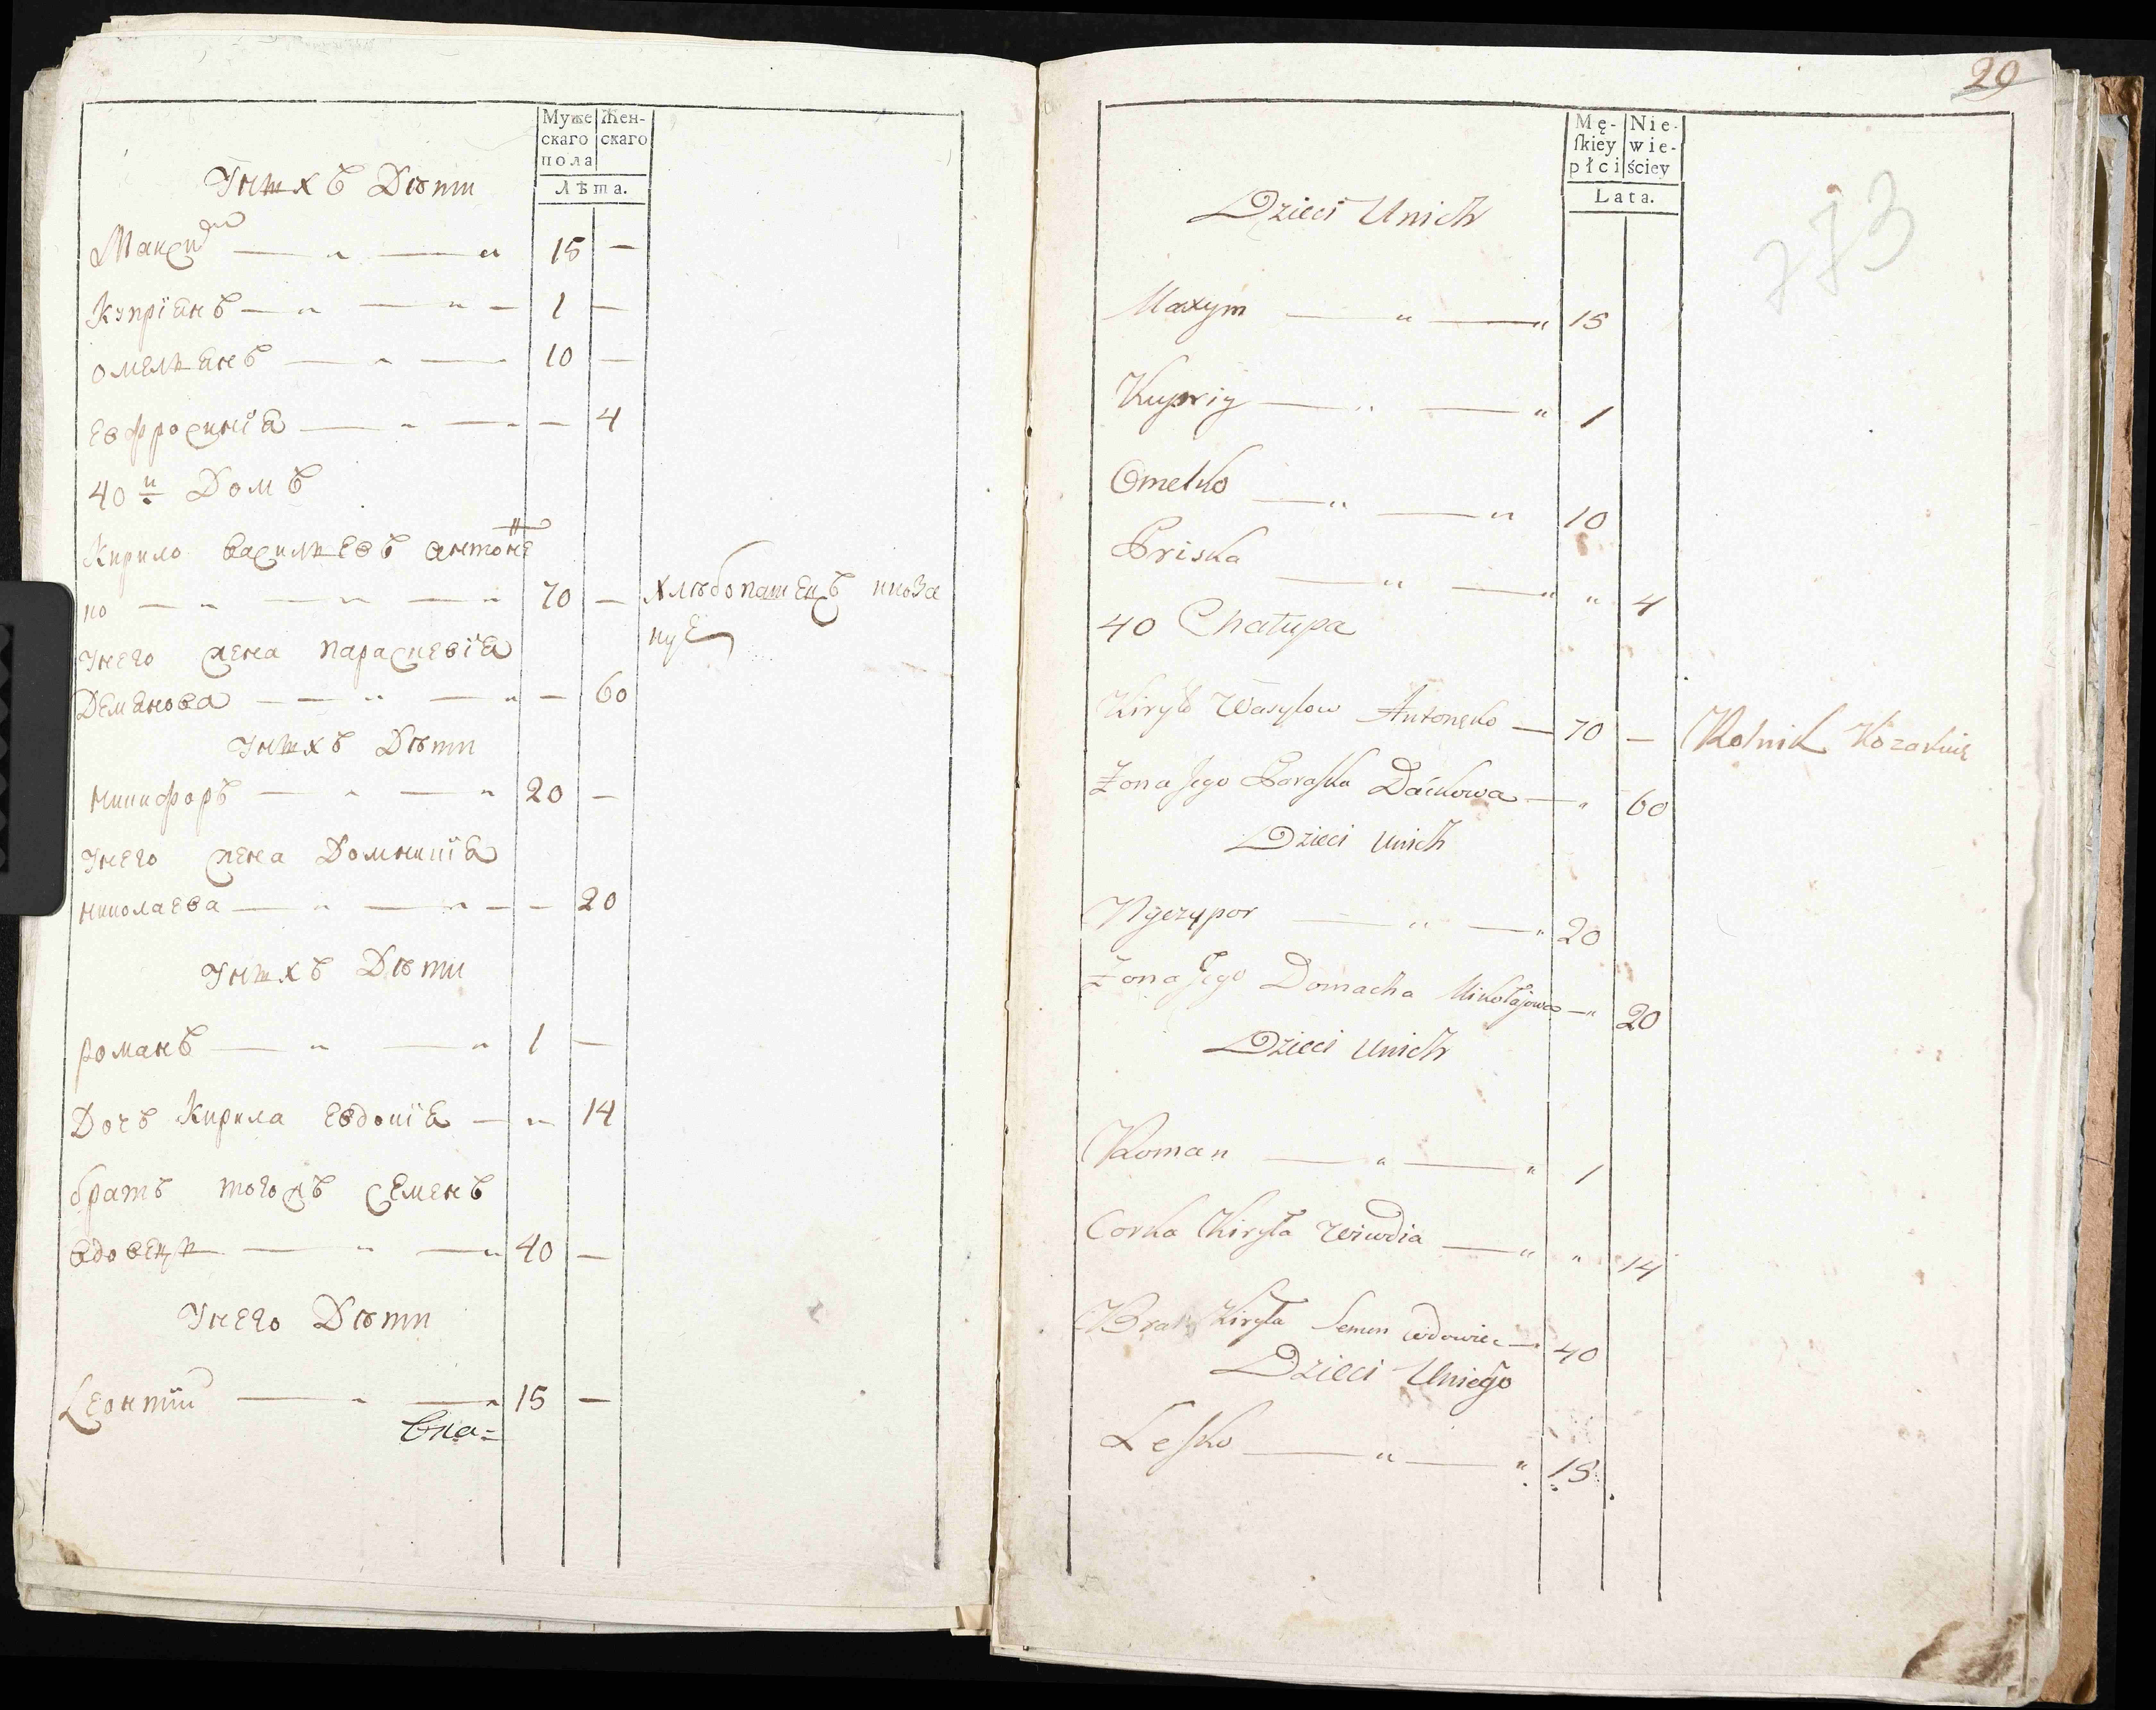 Муже
скаго
пола
Жен-
скаго
Лѣта.
Унихъ Дѣти
Максим 15 —
Купріанъ — „ — „ — 1 —
омельянъ — „ — 10 —
Евфросинія — „ — „ — 4
40й Домъ
Кирило васильевъ антонен
ко — „ — „ — „ 70 — хлѣбопашецъ икоза
куе
Унего жена параскевія
Деманова — „ — „ — 60
Унихъ Дѣти
никифоръ — „ — „ 20 —
Унего жена Домникія
николаева — „ — „ — — 20
Унихъ Дѣти
романъ — „ — „ 1 —
Дочъ Кирила Евдокія — „ 14
братъ тогожъ семенъ
вдовецъ — „ — „ 40 —
Унего Дѣти
Леонтій — „ — „ 15 —
29
Mę-
ſkiey
płci
Nie-
wie-
ściey
Lata.
773
Dzieci Unich
Maxym — „ — „ 15
Kupriy — „ — „ 1
Omelko — „ — „ 10
Priska — „ — „ „ 4
40 Chałupa
Kiryło Wasylow Antonęko — 70 — Rolnik Kozakuie
Żona Jego Paraſka Daćkowa — „ 60
Dzieci Unich
Nyczypor — „ — „ 20
Żona Jego Domacha Mikołajowa — „ 20
Dzieci Unich
Roman — „ — „ 1
Corka Kiryła Wiwdia — „ „ 14
Brat Kiryła Semen wdowiec — 40
Dzieci Uniego
Leſko — „ — „ 15